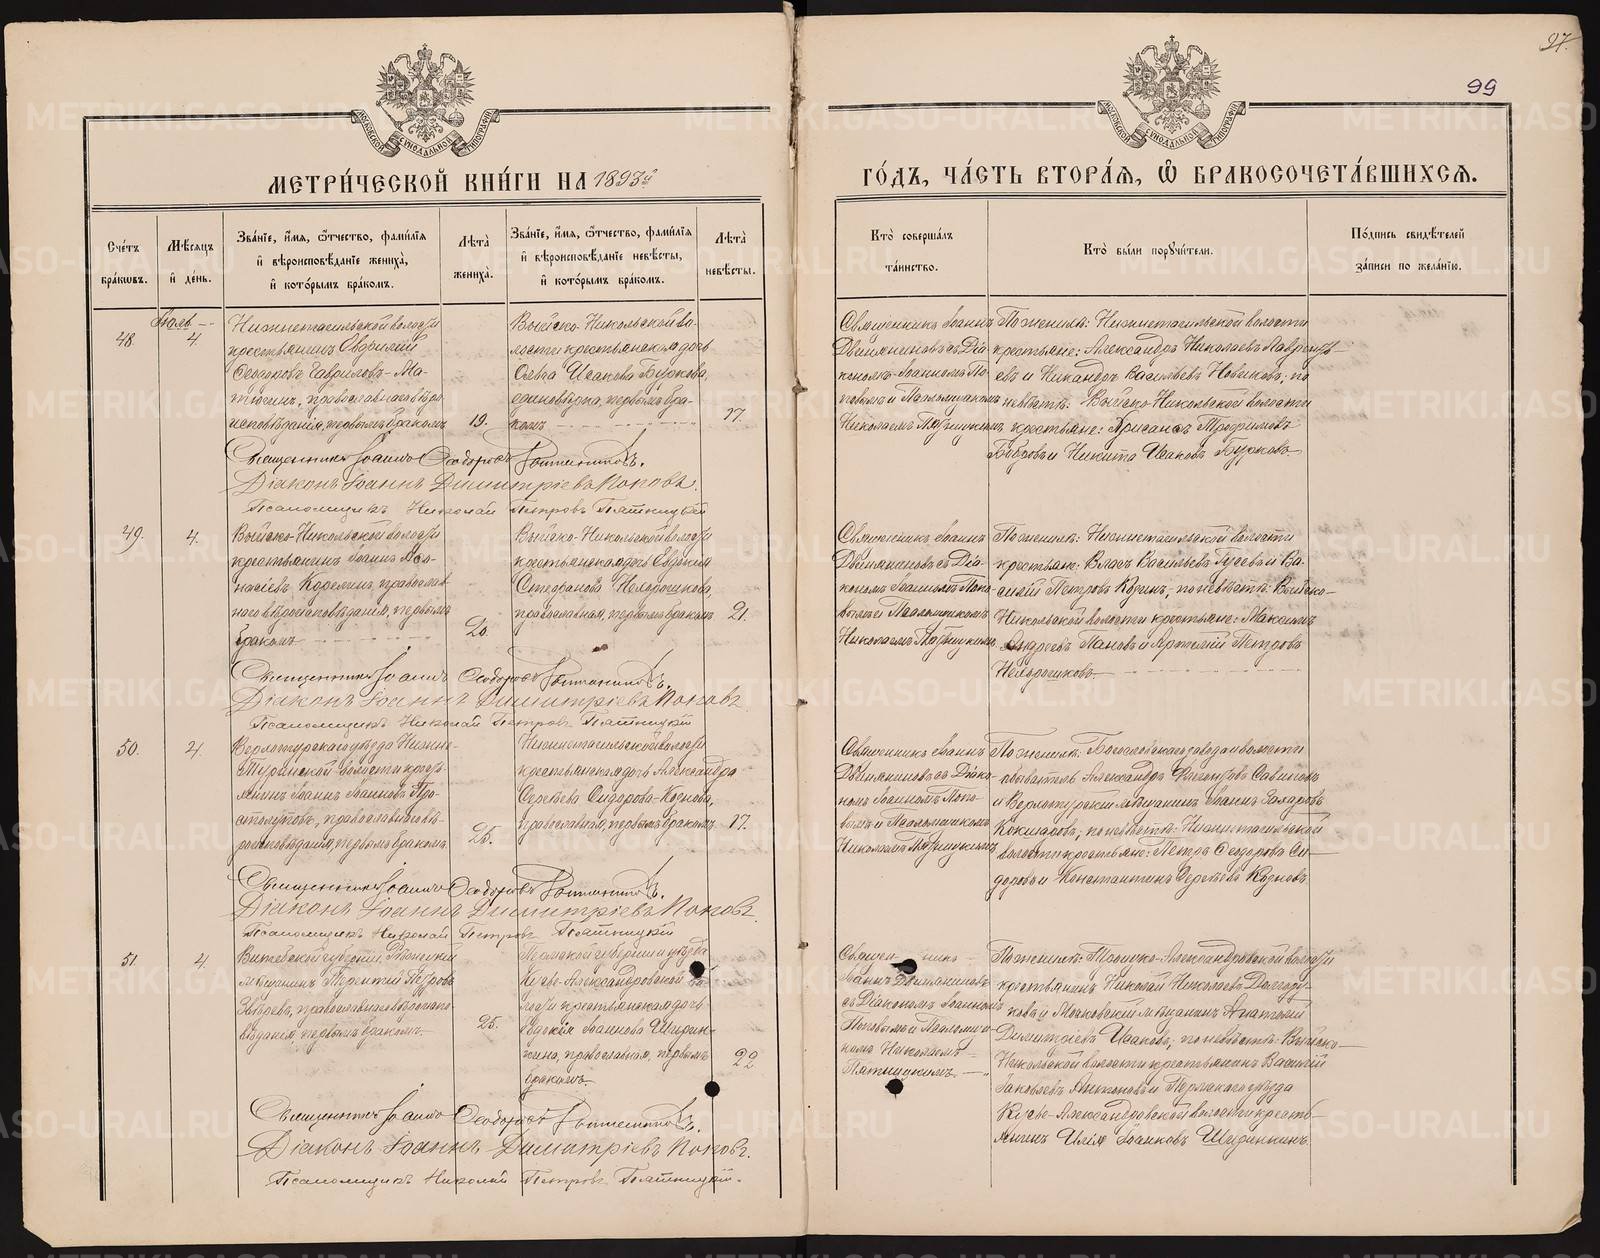 27.
99
МОСКОВСКОЙ СѴНОДАЛЬНОЙ ТИПОГРАФІИ
МОСКОВСКОЙ СѴНОДАЛЬНОЙ ТИПОГРАФІИ
МЕТРИ́ЧЕСКОЙ КНИ́ГИ НА 1893й
ГО́ДЪ, ЧА́СТЬ ВТОРА́Я, Ѽ БРАКОСОЧЕТА́ВШИХСЯ.
Сче́тъ бра́кѡвъ.
Мѣ́сяцъ и҆ де́нь.
Зва́нїе, и҆́мя, ѻ҆́тчество, фами́лїя и҆ вѣроисповѣ́данїе жениха̀, и҆ кото́рымъ бра́комъ.
Лѣ́та жениха̀.
Зва́нїе, и҆́мя, ѻ҆́тчество, фами́лїя и҆ вѣроисповѣ́данїе невѣ́сты, и҆ кото́рымъ бра́комъ.
Лѣ́та невѣ́сты.
Кто̀ соверша́лъ та́инство.
Кто̀ бы́ли порꙋчи́тели.
По́дпись свидѣ́телей за́писи по жела́нїю.
48
4.
Нижнетагильской волости
крестьянинъ
Ѳеодоровъ Гавриловъ-Ма-
тюгинъ, православнаго вѣро
исповѣданія, первымъ бракомъ
19.
Выйско-Никольской во-
лости крестьянская дочь
Исакова Буркова,
единовѣрка, первымъ бра-
комъ
17.
Священникъ Іоаннъ
Двиняниновъ съ Діа-
кономъ Іоанномъ По-
повымъ и Псаломщикомъ
Николаемъ Пятницкимъ
По женихѣ: Нижнетагильской волости
крестьяне: Александръ Николаевъ Лаврентъ-
евъ и Никандръ Васильевъ Новиковъ; по
невѣстѣ: Выйско-Никольской волости
крестьяне: Трофимовъ
Бобровъ и Никита Исаковъ Бурковъ
Священникъ Іоаннъ Ѳеодоровъ
Діаконъ Іоаннъ Димитріевъ Поповъ.
Псаломщикъ Николай Петровъ Пятницкій
49.
4.
Выйско-Никольской волости
крестьянинъ Іоаннъ
православ
наго вѣроисповѣданія, первымъ
бракомъ
20.
Выйско-Никольской волости
крестьянская дочь Евдокія
Стефанова
православная, первымъ бракомъ
21.
Священникъ Іоаннъ
Двиняниновъ съ Діа-
кономъ Іоанномъ Попо-
вымъ и Псаломщикомъ
Николаемъ Пятницкимъ
По женихѣ: Нижнетагильской волости
крестьяне: Власъ Васильевъ Гусевъ и Ва-
силій Петровъ по невѣстѣ: Выйско-
Никольской волости крестьяне: Максимъ
Андреевъ Пановъ и Артемій Петровъ
Священникъ Іоаннъ Ѳеодоровъ
Діаконъ Іоаннъ Димитріевъ Поповъ.
Псаломщикъ Николай Петровъ Пятницкій
50.
4
Верхотурскаго уѣзда Нижне-
Туринской волости кресть-
янинъ Іоаннъ Іоанновъ Про-
столуповъ, православнаго вѣ-
роисповѣданія, первымъ бракомъ.
25.
Нижнетагильской волости
крестьянская дочь Александра
Сергѣева Сидорова-Коднова,
православная, первымъ бракомъ
17.
Священникъ Іоаннъ
Двиняниновъ съ Діако-
номъ Іоанномъ Попо-
вымъ и Псаломщикомъ
Николаемъ Пятницкимъ
По женихѣ: Богословскаго завода и волости
обыватель Александръ
и Верхотурскій мѣщанинъ Іоаннъ Захаровъ
Кокшаровъ, по невѣстѣ: Нижнетагильской
волости крестьяне: Петръ Ѳеодоровъ Си-
доровъ и Константинъ Сергѣевъ Кодновъ
Священникъ Іоаннъ Ѳеодоровъ
Діаконъ Іоаннъ Димитріевъ Поповъ.
Псаломщикъ Николай Петровъ Пятницкій
51.
4.
Витебской губерніи,
мѣщанинъ Терентій Петровъ
Звѣревъ, православнаго вѣроиспо-
вѣданія, первымъ бракомъ.
25.
Пермской губерніи и уѣзда
Кусье-Александровской во-
лости крестьянская дочь
Евдокія Іоаннова Ширин-
кина, православная, первымъ
бракомъ.
22
Священникъ
Іоаннъ Двиняниновъ
съ Діакономъ Іоанномъ
Поповымъ и Псаломщи-
комъ Николаемъ
Пятницкимъ.
По женихѣ: Троицко-Александровской волости
крестьянинъ Николай Николаевъ Долгору-
ковъ и Московскій мѣщанинъ Анатолій
Димитріевъ Исаковъ; по невѣстѣ: Выйско-
Никольской волости крестьянинъ Василій
Іаковлевъ и Пермскаго уѣзда
Кусье-Александровской волости кресть-
янинъ Илія Іоанновъ Ширинкинъ
Священникъ Іоаннъ Ѳеодоровъ
Діаконъ Іоаннъ Димитріевъ Поповъ.
Псаломщикъ Николай Петровъ Пятницкій.
METRIKI.GASO-URAL.RU